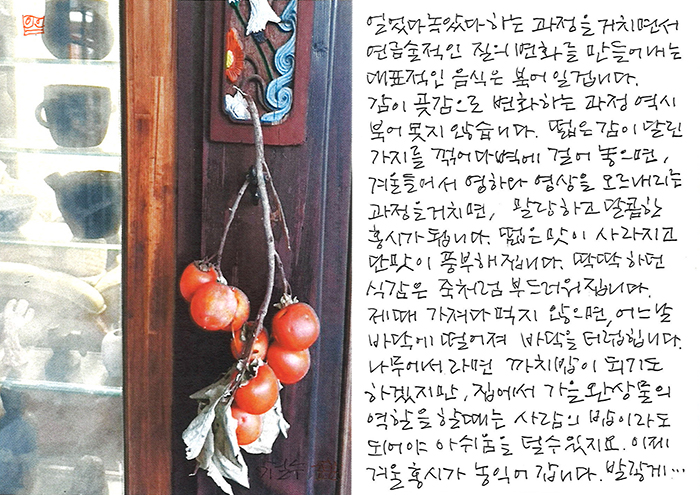 얼었다 녹았다 하는 과정을 거치면서
연금술적인 질의 변화를 만들어내는
대표적인 음식은 북어일겁니다.
감이 곶감으로 변화하는 과정 역시
북어 못지 않습니다. 떫은 감이 달린
가지를 꺾어다 벽에 걸어 놓으면,
겨울들어서 영하와 영상을 오르내리는
과정을 거치면, 말랑하고 달콤한
홍시가 됩니다. 떫은 맛이 사라지고
단맛이 풍부해집니다. 딱딱하던
식감은 죽처럼 부드러워집니다.
제때 가져다 먹지 않으면, 어느날
바닥에 떨어져 바닥을 더럽힙니다.
나무에서라면 까치밥이 되기도
하겠지만, 집에서 가을 완상물의
역할을 할때는 사람의 밥이라도
되어야 아쉬움을 덜 수 있지요. 이제
겨울 홍시가 농익어 갑니다. 발갛게…